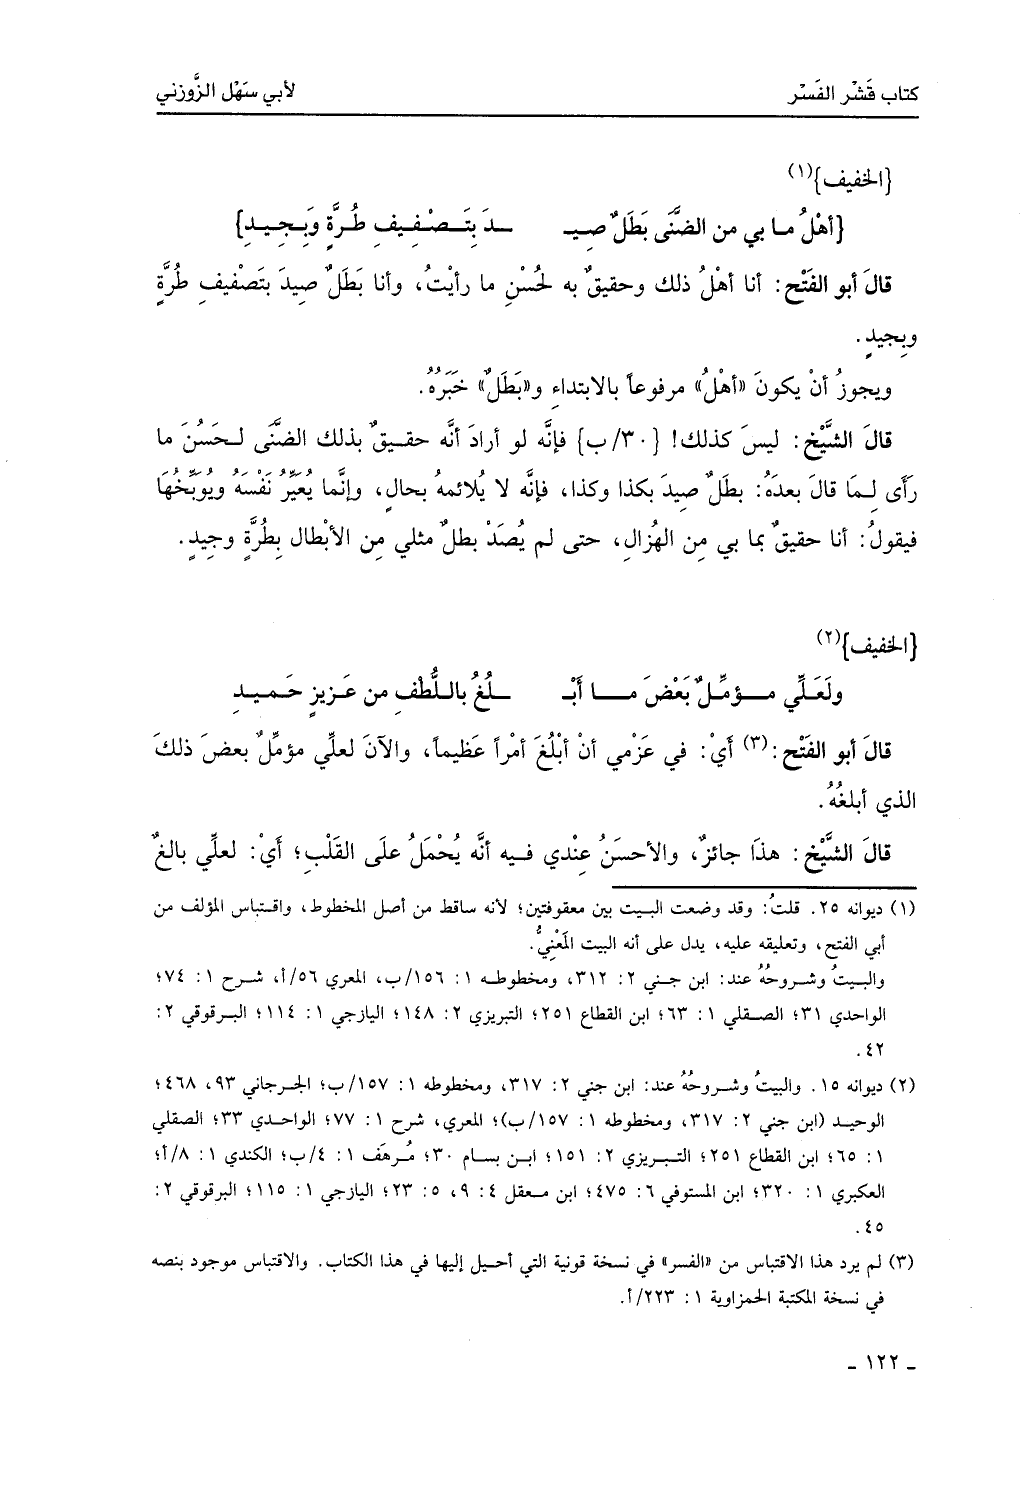 كتاب قَشْر الفَسْر لأبي سَهْل الزَّوزني
{الخفيف}(١)
{أهْلُ ما بي من الضَّنَى بَطَلٌ صِيـ ـدَ بِتَـصْـفِيفِ طُرَّةٍ وَبِـجِيـدِ}
قالَ أبو الفَتْح: أنا أهْلُ ذلك وحقيقٌ به لحُسْنِ ما رأيتُ، وأنا بَطَلٌ صِيدَ بتَصْفيفِ طُرَّةٍ
وبِجيدٍ.
ويجوزُ أنْ يكونَ «أهْلُ» مرفوعاً بالابتداءِ و«بَطَلٌ» خَبَرُهُ.
قالَ الشَّيْخ: ليسَ كذلك! {٣٠/ب} فإنَّه لو أرادَ أنَّه حقيـقٌ بذلك الضَّنَى لـحَسُنَ ما
رَأَى لـمَا قالَ بعدَهُ: بطلٌ صِيدَ بكذا وكذا، فإنَّه لا يُلائمهُ بحالٍ، وإنَّما يُعَيِّرُ نَفْسَهُ ويُوَبِّخُهَا
فيقولُ: أنا حقيقٌ بما بي مِن الهُزالِ، حتى لم يُصَدْ بطلٌ مثلي مِن الأبْطال بِطُرَّةٍ وجِيدٍ.
{الخفيف}(٢)
ولَعَلِّي مـؤمِّـلٌ بَعْضَ مـا أَبْـ ـلُغُ بالـلُّطْفِ من عَـزيزٍ حَـميـدِ
قالَ أبو الفَتْح:(٣) أَيْ: في عَزْمي أنْ أبْلُغَ أمْراً عَظيماً، والآنَ لعلِّي مؤمِّلٌ بعضَ ذلكَ
الذي أبلغُهُ.
قالَ الشَّيْخ: هذَا جائزٌ، والأحسَنُ عِنْدي فـيه أنَّه يُحْمَلُ علَى القَلْبِ؛ أَيْ: لعلِّي بالغٌ
(١) ديوانه ٢٥. قلتُ: وقد وضعت البـيت بين معقوفتين؛ لأنه ساقط من أصل المخطوط، واقـتباس المؤلف من
أبي الفتح، وتعليقه عليه، يدل على أنه البيت المَعْنِيُّ.
والبـيتُ وشـروحُهُ عند: ابن جـني ٢: ٣١٢، ومخطوطـه ١: ١٥٦/ب، المعري ٥٦/أ، شـرح ١: ٧٤؛
الواحدي ٣١؛ الصـقلي ١: ٦٣؛ ابن القطاع ٢٥١؛ التبريزي ٢: ١٤٨؛ اليازجي ١: ١١٤؛ البـرقوقي ٢:
٤٢.
(٢) ديوانه ١٥. والبيتُ وشـروحُهُ عند: ابن جني ٢: ٣١٧، ومخطوطه ١: ١٥٧/ب؛ الجـرجاني ٩٣، ٤٦٨؛
الوحيـد (ابن جني ٢: ٣١٧، ومخطوطه ١: ١٥٧/ب)؛ المعري، شرح ١: ٧٧؛ الواحـدي ٣٣؛ الصقلي
١: ٦٥؛ ابن القطاع ٢٥١؛ التـبـريزي ٢: ١٥١؛ ابـن بسام ٣٠؛ مُـرهَف ١: ٤/ب؛ الكندي ١: ٨/أ؛
العكبري ١: ٣٢٠؛ ابن المستوفي ٦: ٤٧٥؛ ابن معـقل ٤: ٩، ٥: ٢٣؛ اليازجي ١: ١١٥؛ البرقوقي ٢:
٤٥.
(٣) لم يرد هذا الاقتباس من «الفسر» في نسخة قونية التي أحـيل إليها في هذا الكتاب. والاقتباس موجود بنصه
في نسخة المكتبة الحمزاوية ١: ٢٢٣/أ.
- ١٢٢ -